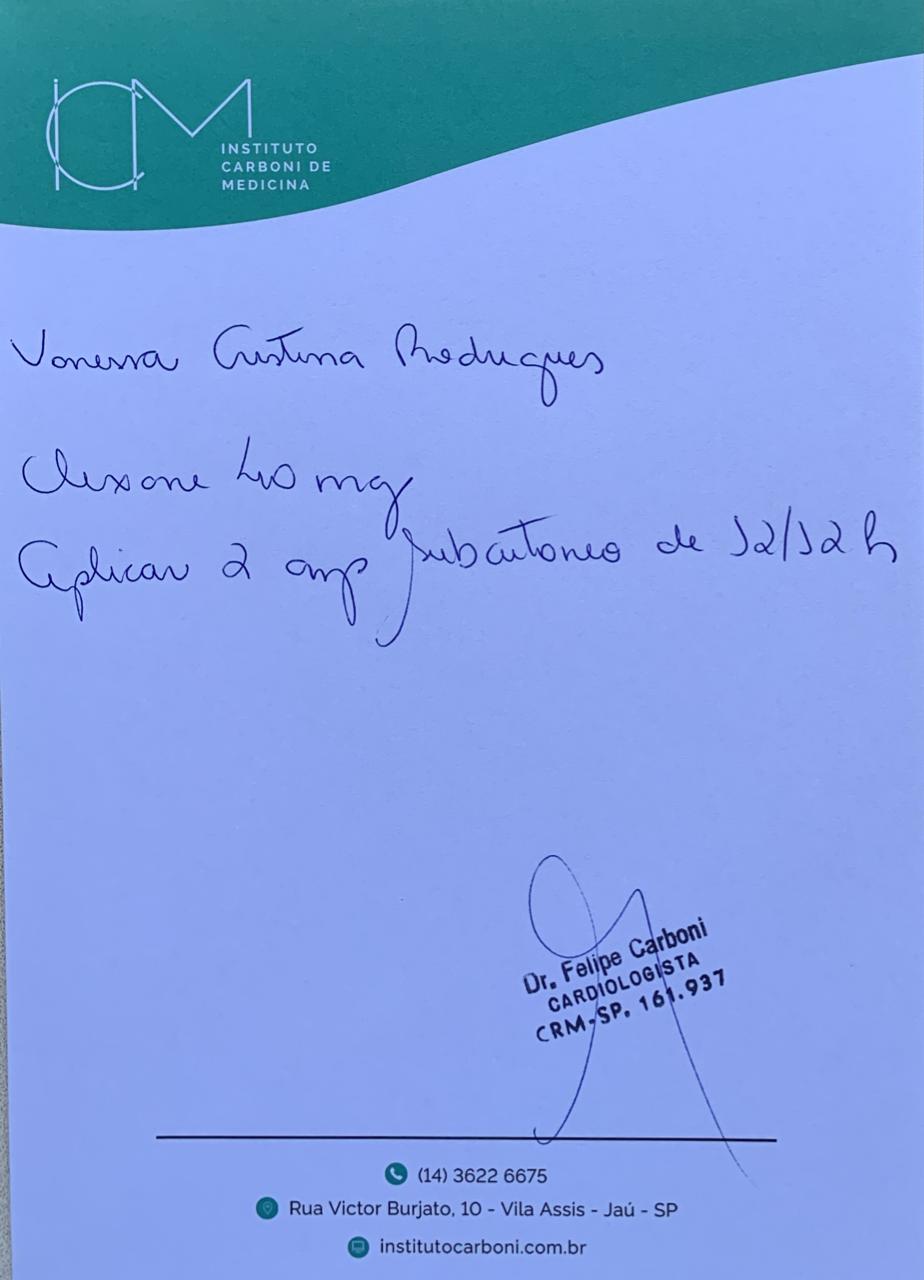 ICM
INSTITUTO
CARBONI DE
MEDICINA
Vanessa Cristina Rodrigues
Clexane 40 mg
Aplicar 2 amp subcutoneo de 12/12 h
Dr. Felipe Carboni
CARDIOLOGISTA
CRM-SP. 161.937
(14) 3622 6675
Rua Victor Burjato, 10 - Vila Assis - Jaú - SP
institutocarboni.com.br